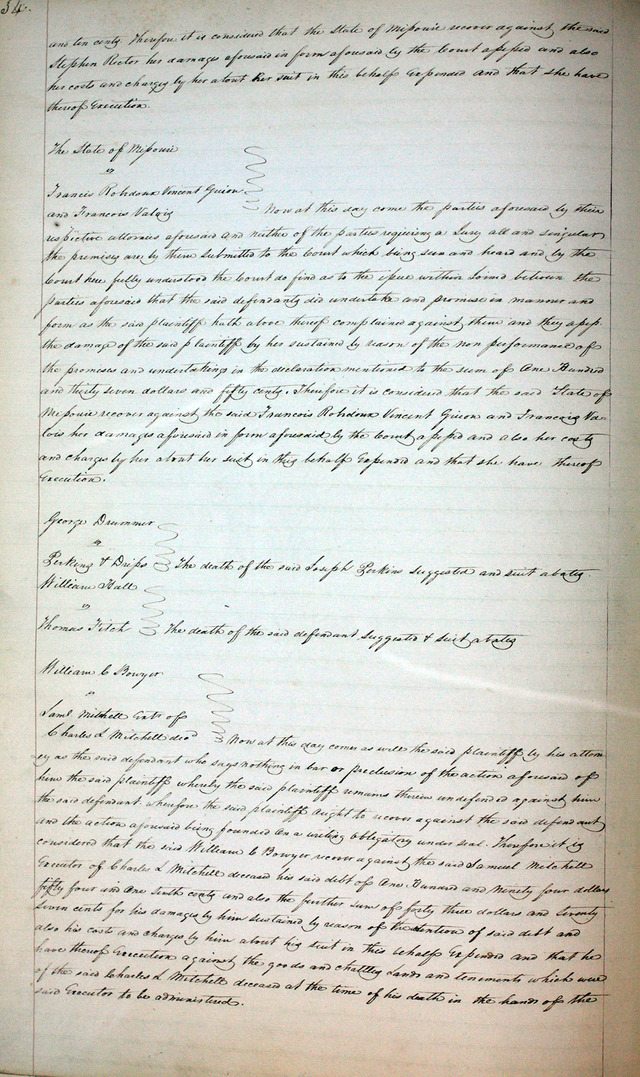 34.
and ten cents. Therefore it is considered that the State of Missouri recover against the said
Stephen Rector her damages aforesaid in form aforesaid by the Court assessed and also
her costs and charges by her about her suit in this behalf Expended and that she have
thereof Execution.
The State of Missouri
vs
Francis Robidoux Vincent Guion
and Francois Valois
Now at this day come the parties aforesaid by their
respective attornies aforesaid and neither of the parties requiring a Jury all and singular
the premises are by them submitted to the Court which being seen and heard and by the
Court here fully understood the Court do find as to the issue within Joined between the
parties aforesaid that the said defendants did undertake and promise in manner and
form as the said plaintiff hath above thereof complained against them and they assess
the damage of the said plaintiff by her sustained by reason of the non performance of
the promises and undertakings in the declaration mentioned to the sum of One Hundred
and thirty seven dollars and fifty cents. Therefore it is considered that the said State of
Missouri recover against the said Francois Robidoux Vincent Guion and Francois Va
lois her damages aforesaid in form aforesaid by the Court assessed and also her costs
and charges by her about her suit in this behalf Expended and that she have thereof
Execution.
George Drummer
vs
Perkins & Drips The death of the said Joseph Perkins suggested and suit abates.
William Hall
vs
Thomas Fitch The death of the said defendant suggested & suit abates
William C Bowyer
vs
Saml Mitchell Extr of
Charles L Mitchell decd Now at this day comes as well the said plaintiff by his attorn
ey as the said defendant who says nothing in bar or preclusion of the action aforesaid of
him the said plaintiff whereby the said plaintiff remains therein undefended against him
the said defendant. Wherefore the said plaintiff ought to recover against the said defendant
and the action aforesaid being founded on a writing obligatory under seal. Therefore it is
considered that the said William C Bowyer recover against the said Samuel Mitchell
Executor of Charles L Mitchell deceased his said debt of One Hundred and Ninety four dollars
fifty four and One Sixth cents and also the further sum of forty three dollars and Seventy
seven cents for his damages by him sustained by reason of the detention of said debt and
also his costs and charges by him about his suit in this behalf Expended and that he
have thereof Execution against the goods and chattles Lands and tenements which were
of the said Charles L Mitchell deceased at the time of his death in the hands of the
said Executor to be administered.